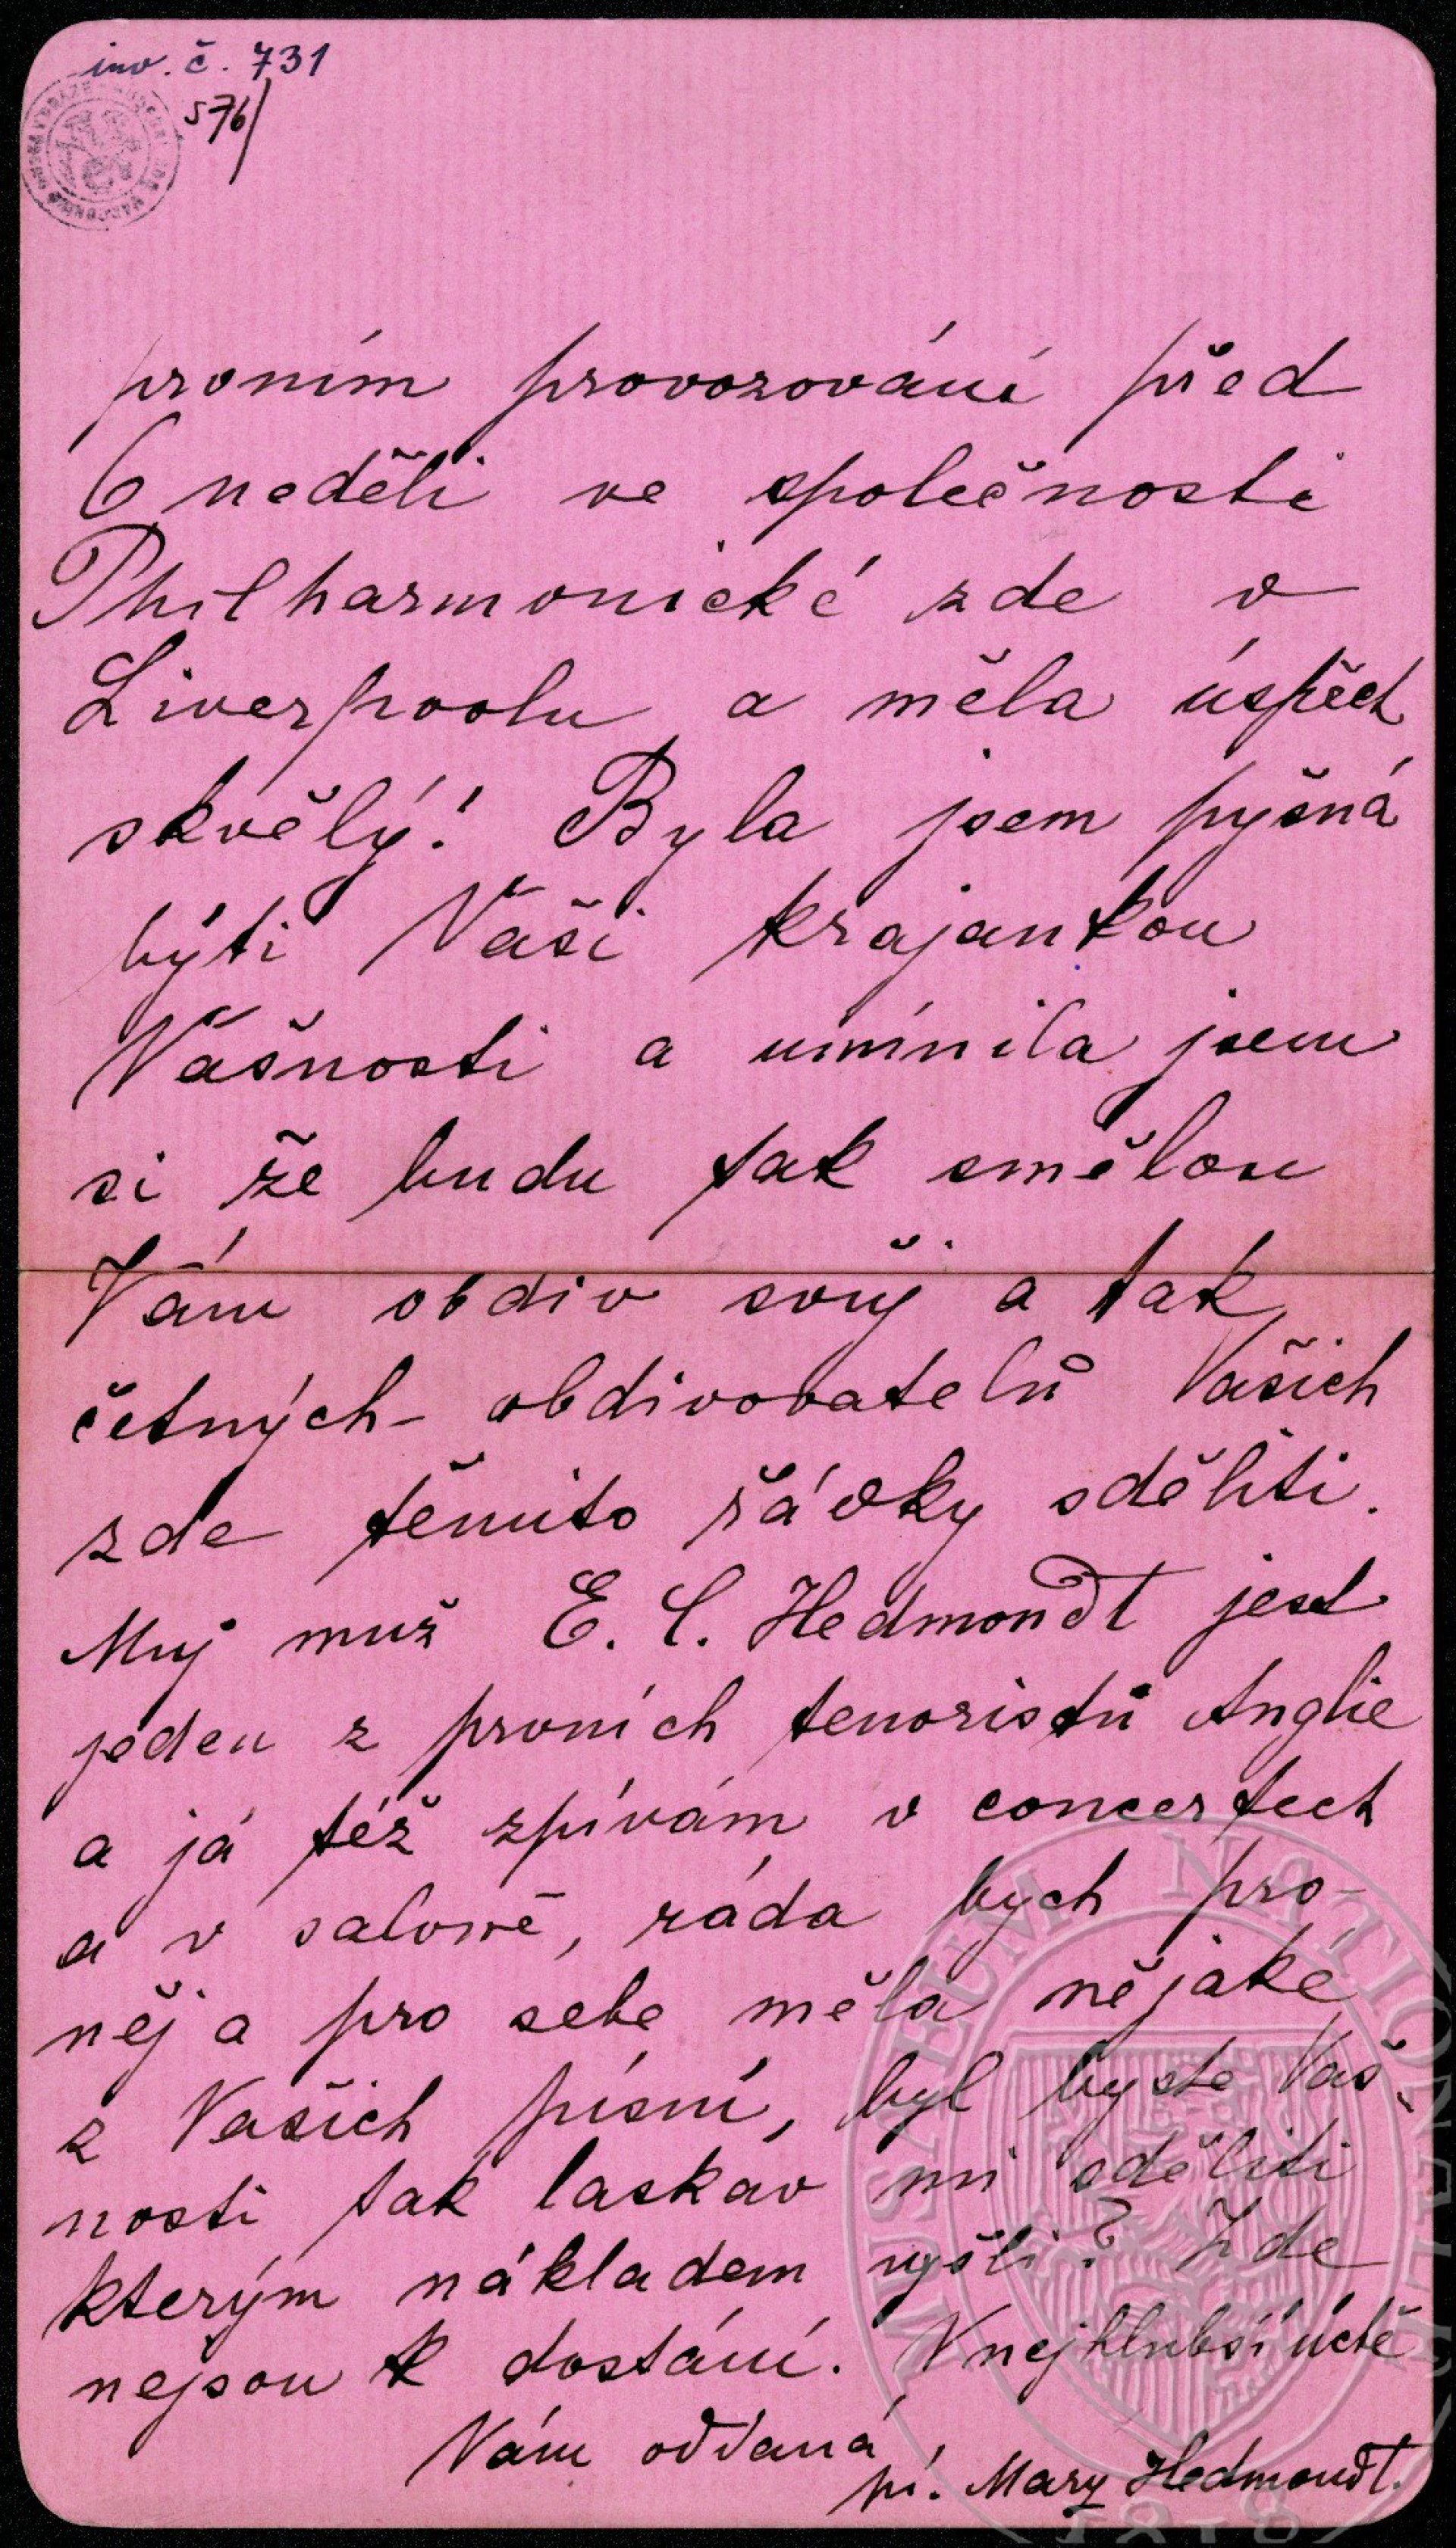 inv. č. 731
576/
prvním provozování před
6 neděli ve společnosti
Philharmonické zde v
Liverpoolu a měla úspěch
skvělý! Byla jsem pyšná
býti Vaši krajankou
Vašnosti a umínila jsem
si že budu tak smělou
Vám obdiv svůj a tak
četných obdivovatelů Vašich
zde těmito řádky sděliti.
Muj muž E. C. Hedmondt jest
jeden z prvních tenoristů Anglie
a já též zpívám v concertech
a v saloně, ráda bych pro-
něj a pro sebe měla nějaké
z Vašich písní, byl byste Vaš-
nosti tak laskav mi sděliti
kterým nákladem vyšli? Zde
nejsou k dostání. V nejhlubší úctě
Vám oddaná
pí. Mary Hedmondt.
MUSAEUM NATIONALE
1818